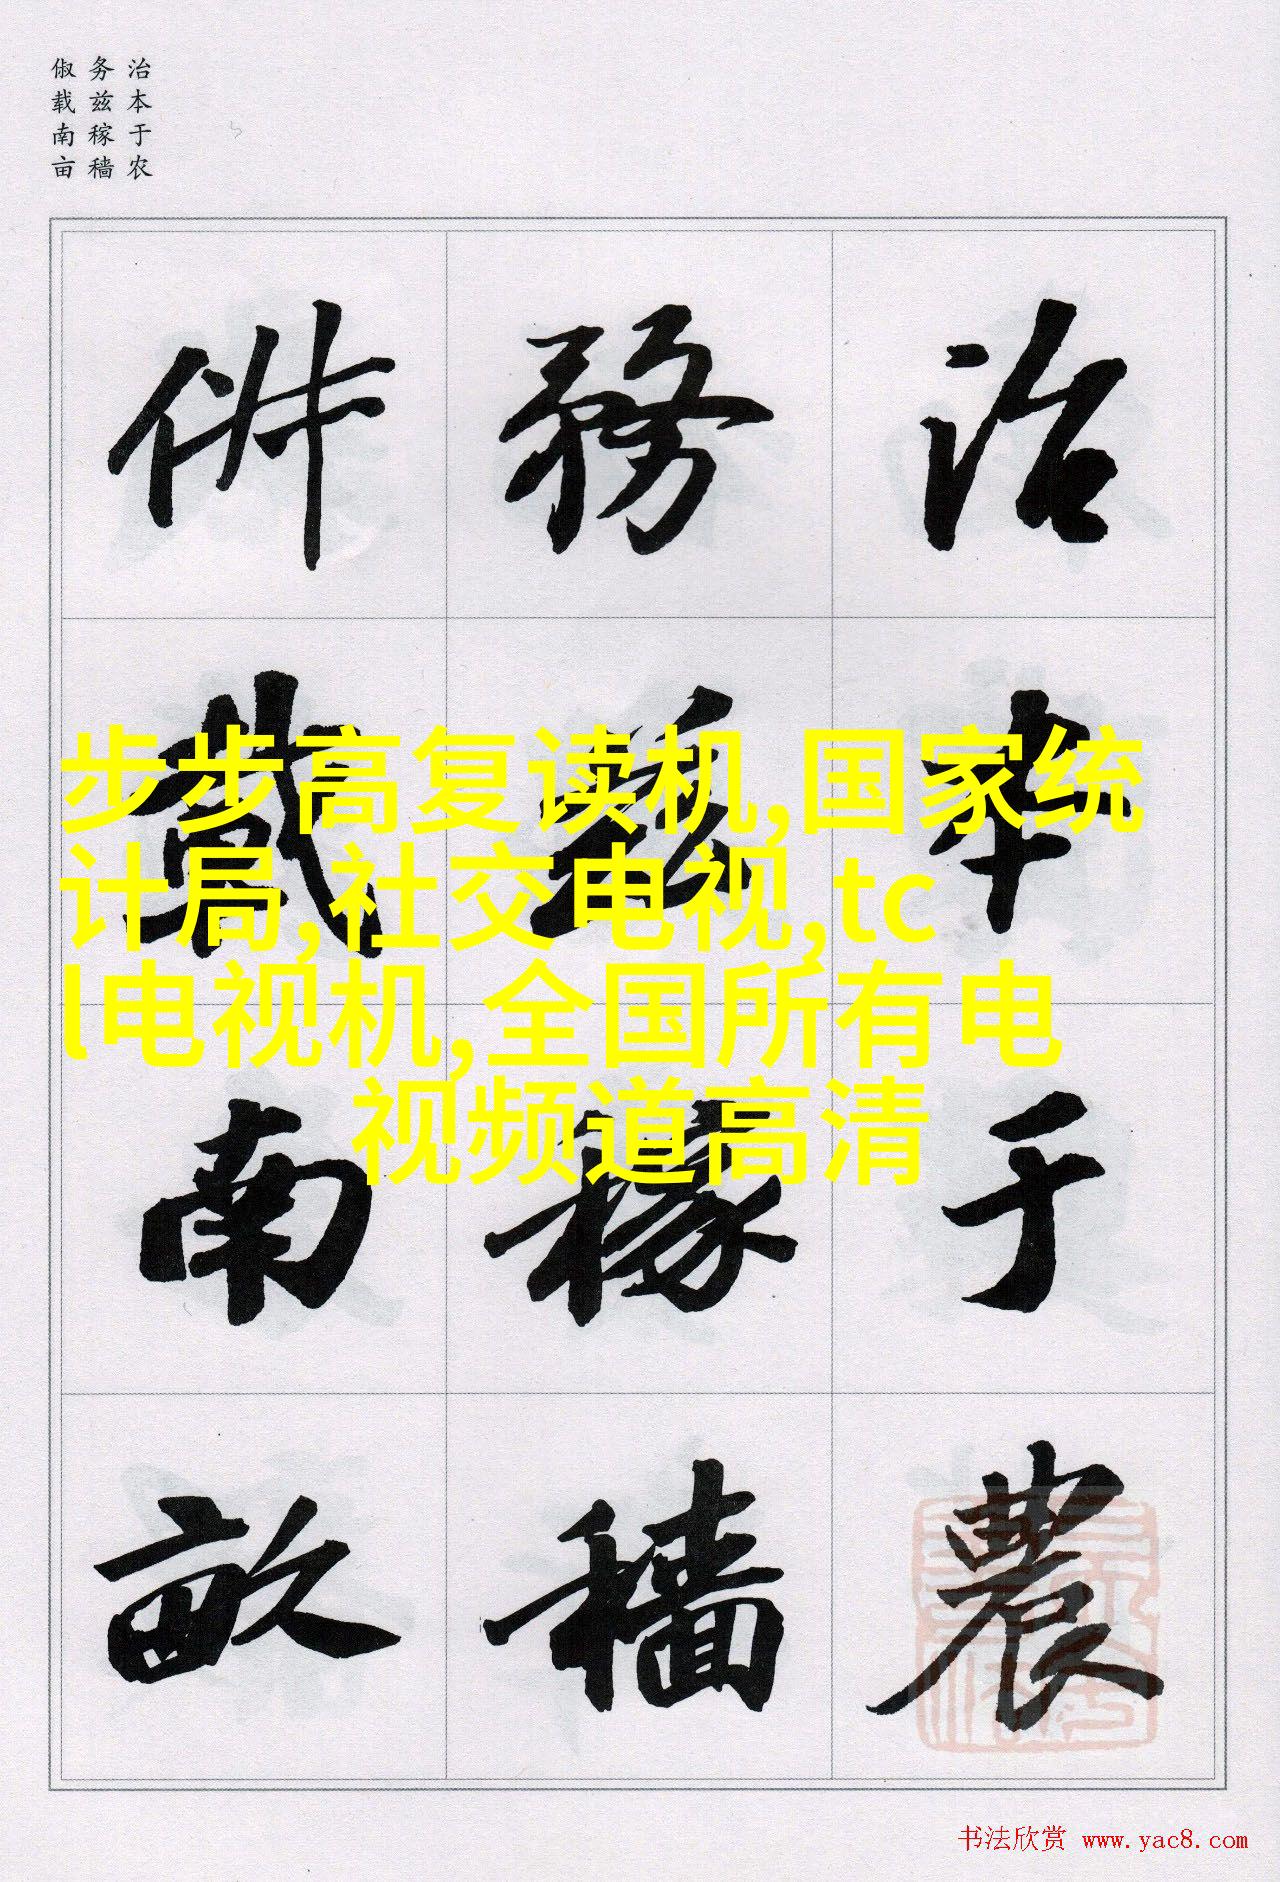 治本于农
务兹稼穑
俶载南亩
治本于農
務茲稼穡
俶載南畝
步步高复读机,国家统
计局,社交电视,tc
l电视机,全国所有电
视频道高清
书法欣赏 www.yac8.com